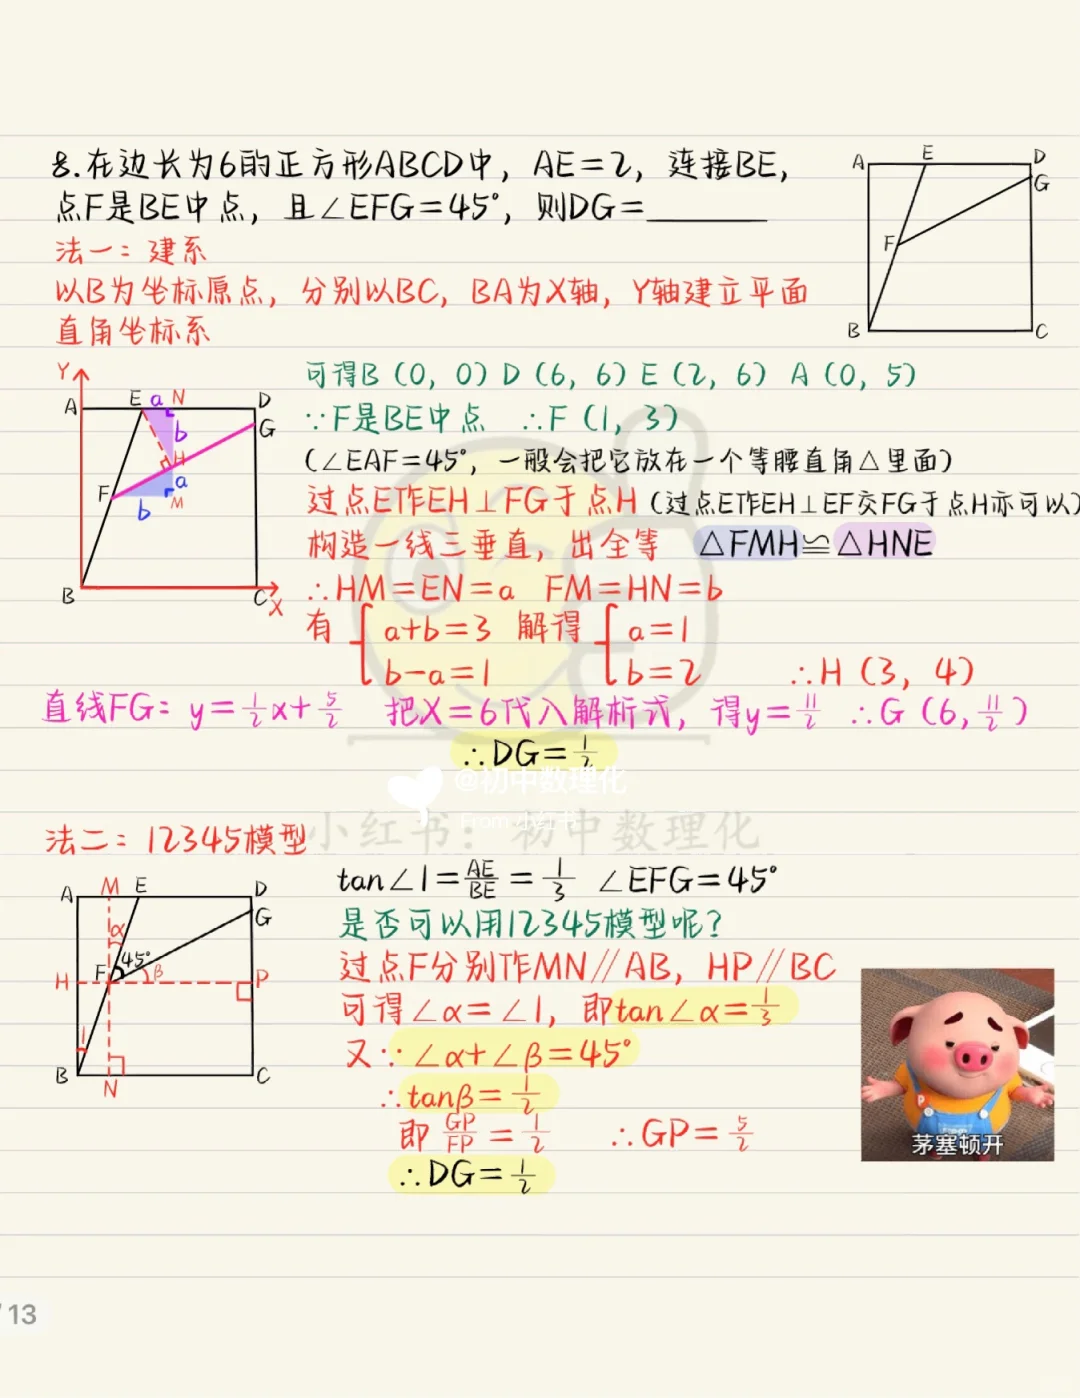 8.在边长为6的正方形ABCD中，AE=2，连接BE，
点F是BE中点，且∠EFG=45°，则DG=______
A E D
G
F
B C
法一：建系
以B为坐标原点，分别以BC，BA为X轴，Y轴建立平面
直角坐标系
Y
A E a N D
G
b
H
a
F M
b
B C X
可得B（0，0）D（6，6）E（2，6）A（0，5）
∵F是BE中点 ∴F（1，3）
（∠EAF=45°，一般会把它放在一个等腰直角△里面）
过点E作EH⊥FG于点H（过点E作EH⊥EF交FG于点H亦可以）
构造一线三垂直，出全等 △FMH≌△HNE
∴HM=EN=a FM=HN=b
有{a+b=3 解得{a=1
b-a=1 b=2 ∴H（3，4）
直线FG：y=1/2x+5/2 把X=6代入解析式，得y=11/2 ∴G（6，11/2）
∴DG=1/2
@初中数理化
From 小红书
小红书：初中数理化
法二：12345模型
A M E D
G
α
45°
H F β P
1
B N C
tan∠1=AE/BE=1/3 ∠EFG=45°
是否可以用12345模型呢？
过点F分别作MN∥AB，HP∥BC
可得∠α=∠1，即tan∠α=1/3
又∵∠α+∠β=45°
∴tanβ=1/2
即GP/FP=1/2 ∴GP=5/2
∴DG=1/2
茅塞顿开
/13